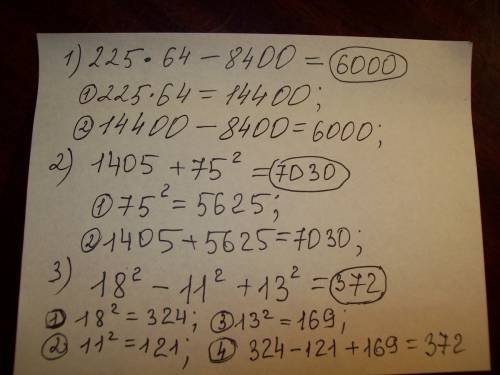 1) 225 · 64 – 8400 = 6000
① 225 · 64 = 14400;
② 14400 – 8400 = 6000;
2) 1405 + 75² = 7030
① 75² = 5625;
② 1405 + 5625 = 7030;
3) 18² – 11² + 13² = 372
① 18² = 324; ③ 13² = 169;
② 11² = 121; ④ 324 – 121 + 169 = 372